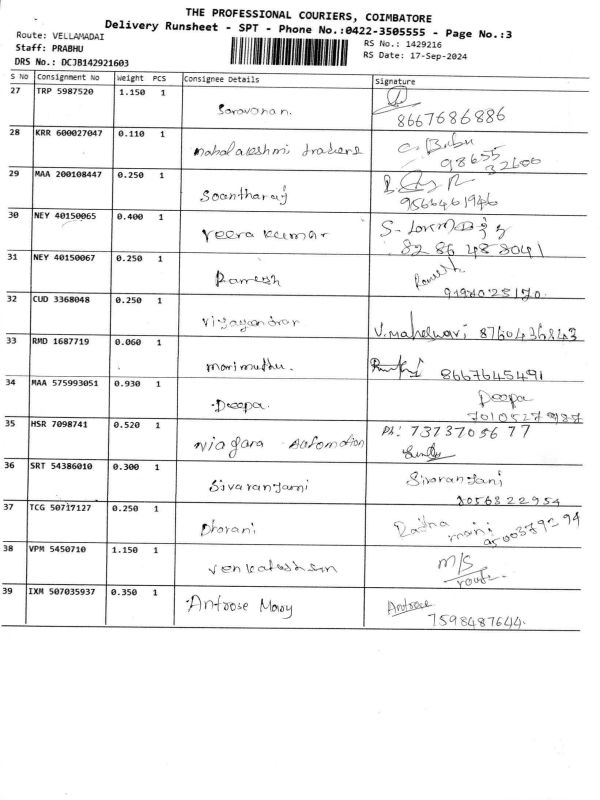 THE PROFESSIONAL COURIERS, COIMBATORE
Delivery Runsheet - SPT - Phone No.:0422-3505555 - Page No.:3
Route: VELLAMADAI
RS No.: 1429216
Staff: PRABHU
RS Date: 17-Sep-2024
DRS No.: DCJB142921603
S No Consignment No Weight PCS Consignee Details Signature
27 TRP 5987520 1.150 1
Saravanan. 8667686886
28 KRR 600027047 0.110 1 C. Babu
Mahalakshmi traders 98655
32600
29 MAA 200108447 0.250 1
Soantharaj 9566461946
30 NEY 40150065 0.400 1
Veera kumar 82 86 48 8041
31 NEY 40150067 0.250 1 Ramesh
Ramesh
32 CUD 3368048 0.250 1
Vijayandran V. Maheswari
33 RMD 1687719 0.060 1
Marimuthu. 8667645491
34 MAA 575993051 0.930 1 Deepa
Deepa. 7010527987
35 HSR 7098741 0.520 1 Ph: 7373705677
Niagara Automation
36 SRT 54386010 0.300 1 Sivaranjani
Sivaranjani 8056822954
37 TCG 50717127 0.250 1 Radha
Dharani mani 9500379294
38 VPM 5450710 1.150 1 M/S
Venkatashem route.
39 IXM 507035937 0.350 1
Antrose Mary Antrose
7598487644.